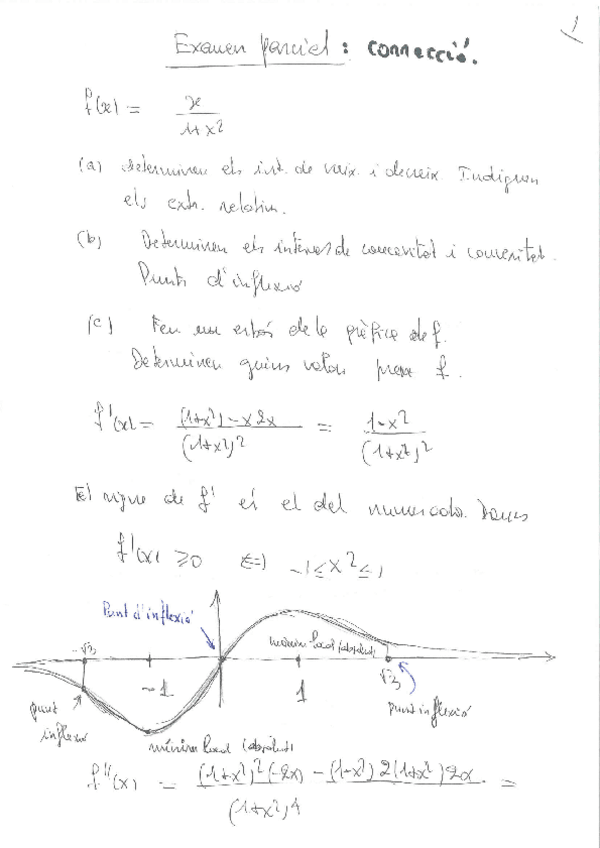 1
Examen parcial : correcció.
f(x) = x / 1+x²
(a) Determineu els int. de creix. i decreix. Indiqueu
els extr. relatius.
(b) Determineu els intervals de concavitat i convexitat.
Punts d'inflexió
(c) Feu un esbós de la gràfica de f.
Determineu quins valors pren f.
f'(x) = (1+x²) - x 2x / (1+x²)² = 1-x² / (1+x²)²
El signe de f' és el del numerador. Doncs
f'(x) ≥ 0 ⟺ -1 ≤ x² ≤ 1
Punt d'inflexió
-√3
màxim local (absolut)
-1
1
√3
punt
inflexió
punt inflexió
mínim local (absolut)
f''(x) = (1+x²)²(-2x) - (1-x²) 2(1+x²) 2x / (1+x²)⁴ =